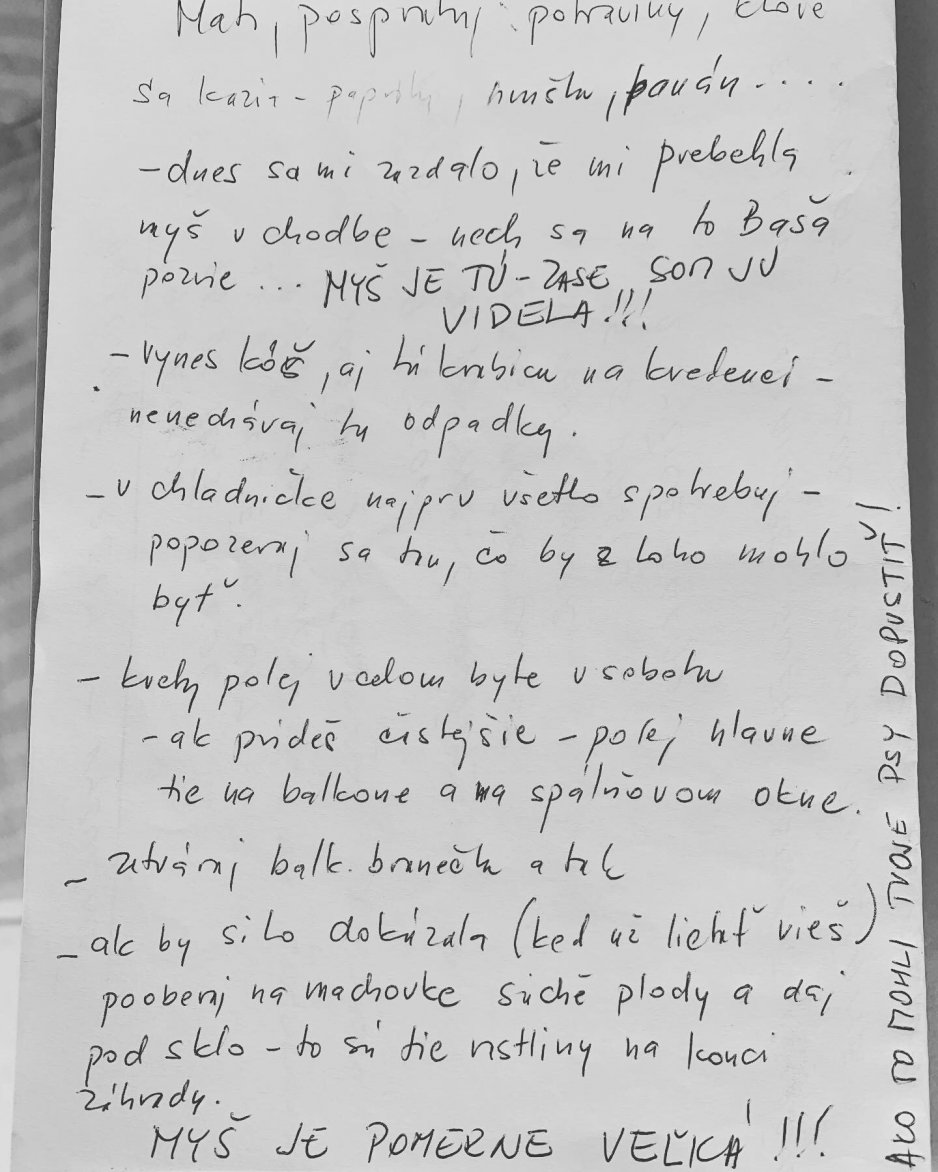 Mať, pospratuj: potraviny, ktoré
sa kazia - papriky, hrušku, banán....
- dnes sa mi zazdalo, že mi prebehla
myš v chodbe - nech sa na to Baša
pozrie ... MYŠ JE TÚ - ZASE SOM JU
VIDELA!!!
- vynes kôš, aj tú krabicu na kredenci -
nenechávaj tu odpadky.
- v chladničke najprv všetko spotrebuj -
popozeraj sa tu, čo by z toho mohlo
byť.
- kvety polej v celom byte v sobotu
- ak prídeš čistejšie - polej hlavne
tie na balkone a na spálňovom okne.
- zatváraj balk. bráničku a tak
- ak by si to dokázala (keď už lietať vieš)
pooberaj na machovke suché plody a daj
pod sklo - to sú tie rastliny na konci
záhrady.
MYŠ JE POMERNE VEĽKÁ!!!
AKO TO MOHLI TVOJE PSY DOPUSTIŤ!